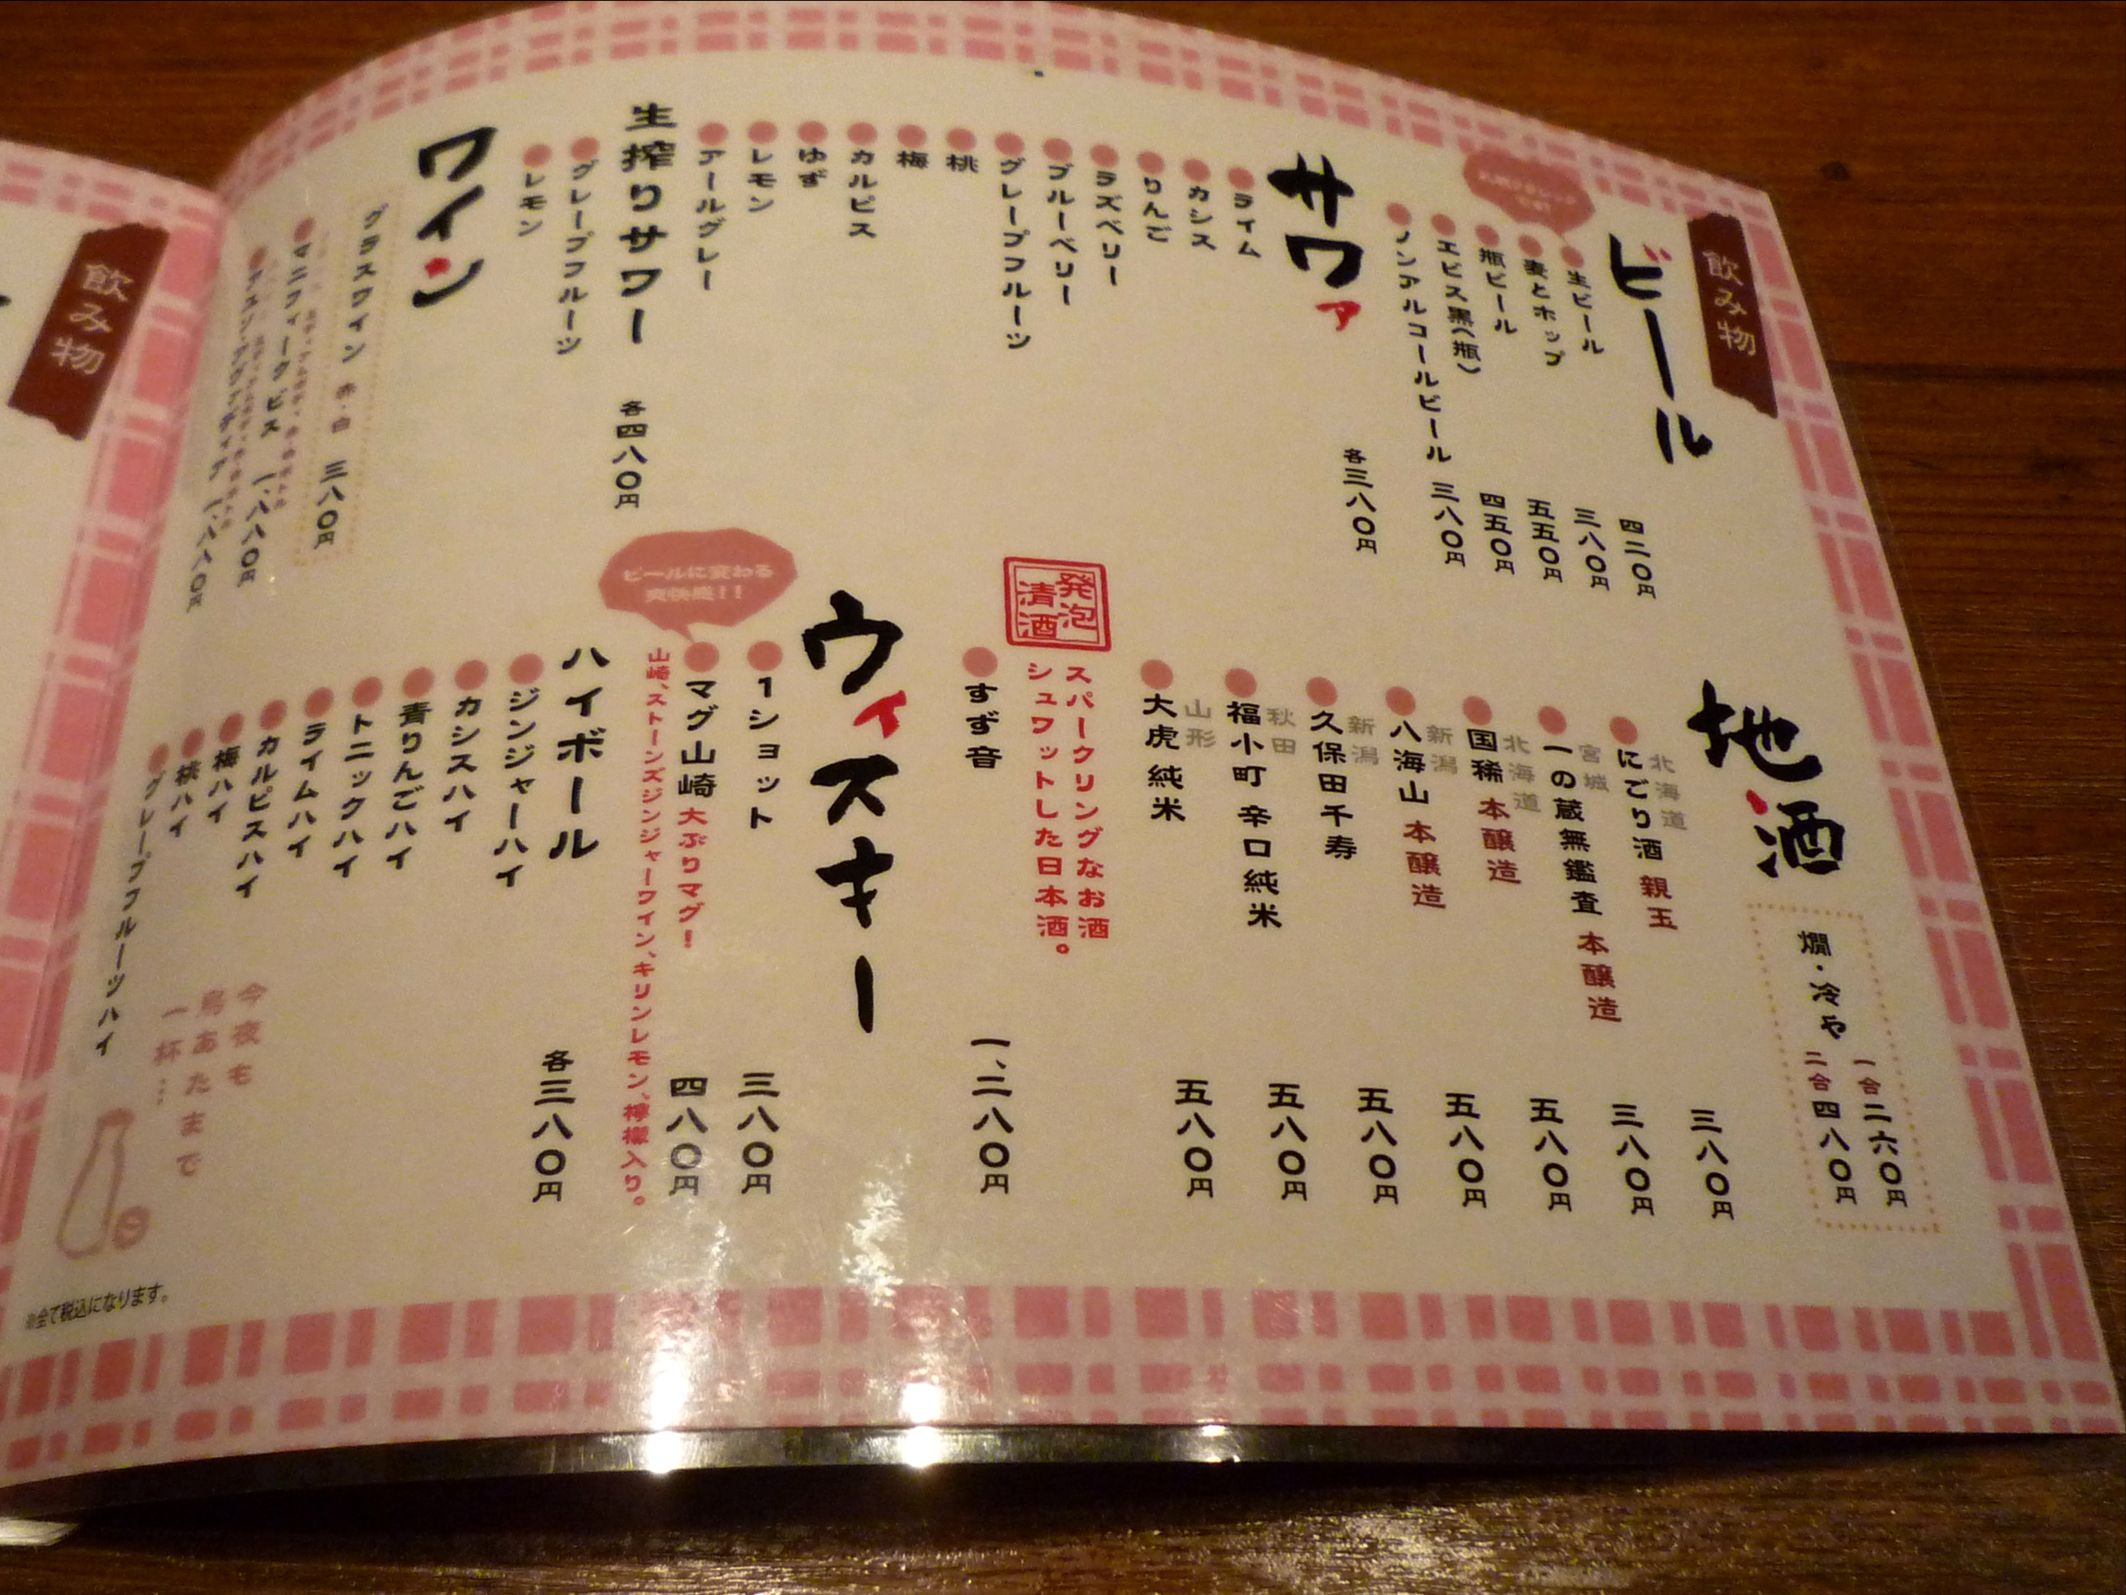 飲み物
ビール
生ビール 四二〇円
麦とホップ 三八〇円
瓶ビール 五五〇円
エビス黒(瓶) 四五〇円
ノンアルコールビール 三八〇円
サワァ 各三八〇円
ライム
カシス
りんご
ラズベリー
ブルーベリー
グレープフルーツ
桃
梅
カルピス
ゆず
レモン
アールグレー
生搾りサワー 各四八〇円
グレープフルーツ
レモン
ワイン
グラスワイン 赤・白 三八〇円
一、八八〇円
一、八八〇円
地酒
燗・冷や
一合 二六〇円
二合 四八〇円
三八〇円
北海道
にごり酒 親玉 三八〇円
宮城
一の蔵無鑑査 本醸造 五八〇円
北海道
国稀 本醸造 五八〇円
新潟
八海山 本醸造 五八〇円
新潟
久保田千寿 五八〇円
秋田
福小町 辛口純米 五八〇円
山形
大虎 純米
発泡清酒
スパークリングなお酒
シュワットした日本酒。
すず音 一、二八〇円
ウィスキー
1ショット 三八〇円
ビールに変わる
爽快感!!
マグ山崎 大ぶりマグ! 四八〇円
山崎、ストーンズジンジャーワイン、キリンレモン、檸檬入り。
ハイボール 各三八〇円
ジンジャーハイ
カシスハイ
青りんごハイ
トニックハイ
ライムハイ
カルピスハイ
梅ハイ
桃ハイ
グレープフルーツハイ
今夜も
鳥あたまで
一杯…
※全て税込になります。
飲み物